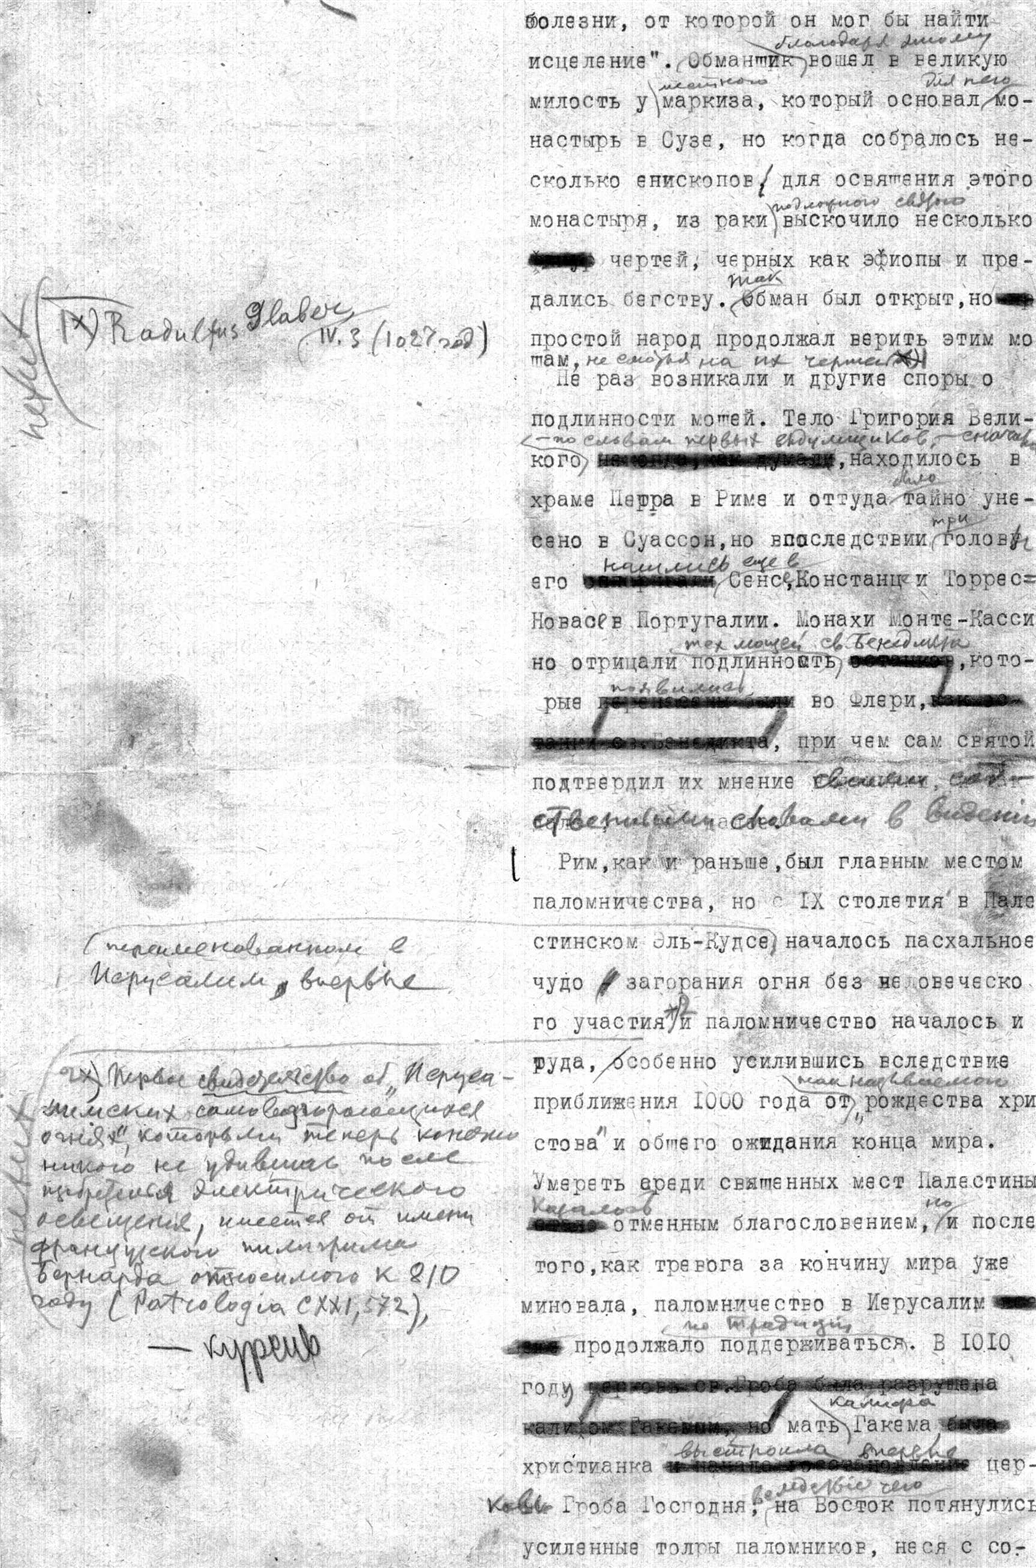 болезни, от которой он мог бы найти
благодаря этому
исцеление". Обманщик вошел в великую
местного для него
милость у маркиза, который основал мо-
настырь в Сузе, но когда собралось не-
сколько епископов, для освящения этого
подложного святого
монастыря, из раки выскочило несколько
чертей, черных как эфиопы и пре-
так
дались бегству. Обман был открыт, но
простой народ продолжал верить этим мо
щам, не смотря на их чертей х)
Не раз возникали и другие споры о
подлинности мощей. Тело Григория Вели-
по словам первых
кого, находилось в
было
храме Петра в Риме и оттуда тайно уне-
три
сено в Суассон, но впоследствии головы
нашлись еще в
его Сенсе, Констанце и Торрес=
Новасе в Португалии. Монахи Монте-Касси
тех мощей св. Бенедикта
но отрицали подлинность, кото-
появились
рые во Флери,
, при чем сам святой
подтвердил их мнение своими соб-
ственными словами в видении
Рим, как и раньше, был главным местом
паломничества, но с IX столетия в Пале
стинском Эль-Кудсе, началось пасхальное
чудо загорания огня без человеческо
го участия и паломничество началось и
туда, особенно усилившись вследствие
так называемого
приближения 1000 года от "рождества хри
стова" и общего ожидания конца мира.
Умереть среди священных мест Палестины
казалось но
отменным благословением, и после
того, как тревога за кончину мира уже
миновала, паломничество в Иерусалим
по традиции
продолжало поддерживаться. В 1010
году
калифа
мать Гакема
выстроила
христианка цер-
вследствие чего
ковь Гроба Господня; на Восток потянулись
усиленные толпы паломников, неся с со-
петит
х) Radulfus Glaber
IV. 3 (1027 год)
переименованном в
Иерусалим, впервые
2х) Первое свидетельство об "Иеруса-
лимских самовозгорающихся
огнях", которыми теперь конечно
никого не удивишь после
изобретения электрического
освещения, имеется от имени
французского пилигрима
Бернарда относимого к 870
году (Patrologia CXXI, 572),
— курсив
петит